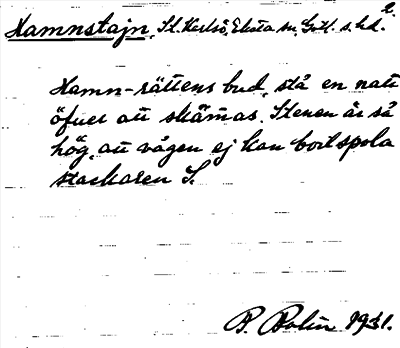 Hamnstajn, St. Karlsö, Eksta sn, Gotl. s. hd. 2.
Hamn-rättens bud, stå en natt
öfver att skämas. Stenen är så
hög, att vågen ej kan bortspola
stackaren S.
P. Bolin 1931.